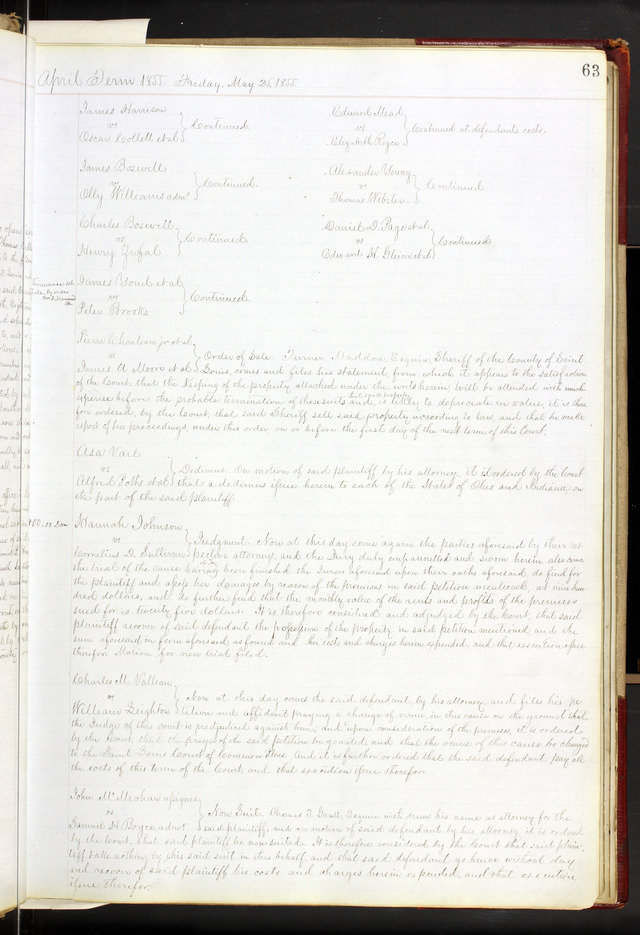 63
April Term 1855. Friday, May 25, 1855.
James Harrison
vs
Oscar Collett et al
Continued
Edward Mead
vs
Elizabeth Royce
Continued at defendants costs.
James Boswell
vs
Olly Williams adm
Continued.
Alexander Young
vs
Thomas Webster
Continued
Charles Boswell
vs
Henry
Continued
Daniel D. Page et al
vs
Edward H. et al
Continued
James et al
vs
Peter Brooks
Continued
Pierre Chouteau jr et al
vs
James M Moore et al
Order of Sale. Turner Maddox Esquire, Sheriff of the County of Saint
Louis, comes and files his statement, from which it appears to the satisfaction
of the Court, that the keeping of the property attached under the writs herein will be attended with much
expense before the probable termination of the suits, and is likely to depreciate in value, it is there
for ordered, by the Court, that said Sheriff sell said property according to law, and that he make
report of his proceedings, under this order, on or before the first day of the next term of this Court.
Asa
vs
Alfred et al
Dedimus. On motion of said plaintiff by his attorney, it is ordered by the Court
that a dedimus issue herein to each of the States of Ohio and Indiana, on
the part of the said plaintiff.
Hannah Johnson
vs
Cornelius D. Sullivan
Judgment. Now at this day come again the parties aforesaid by their res
pective attorneys, and the Jury duly empannelled and sworn herein also come
the trial of the cause having been finished the Jurors aforesaid upon their oaths aforesaid, do find for
the plaintiff and assess her damages by reason of the premises in said petition mentioned, at nine hun
dred dollars, and do further find that the monthly value of the rents and profits of the premises
sued for is twenty five dollars. It is therefore considered and adjudged by the Court, that said
plaintiff recover of said defendant the possession of the property in said petition mentioned and the
sum aforesaid in form aforesaid assessed and her costs and charges herein expended, and that execution issue
therefor. Motion for new trial filed.
Charles M. Valleau
vs
William Leighton
Now at this day comes the said defendant, by his attorney and files his pe
tition and affidavit praying a change of venue in this cause on the ground that
the Judge of this court is prejudiced against him, and upon consideration of the premises, it is ordered
by the Court, that the prayer of the said petition be granted, and that the venue of this cause be changed
to the Saint Louis Court of Common Pleas. And it is further ordered that the said defendant pay all
the costs of this term of the Court, and that execution issue therefor.
John McMechan assignee
vs
Samuel H Boyce, admr
Non Suit. Thomas T. Gantt, Esquire with draws his name as attorney for the
said plaintiff, and on motion of said defendant by his attorney, it is ordered
by the Court, that said plaintiff be nonsuited. It is therefore considered by the Court that said plain
tiff take nothing by his said suit in this behalf, and that said defendant go hence without day
and recover of said plaintiff his costs and charges herein expended, and that execution
issue therefor.